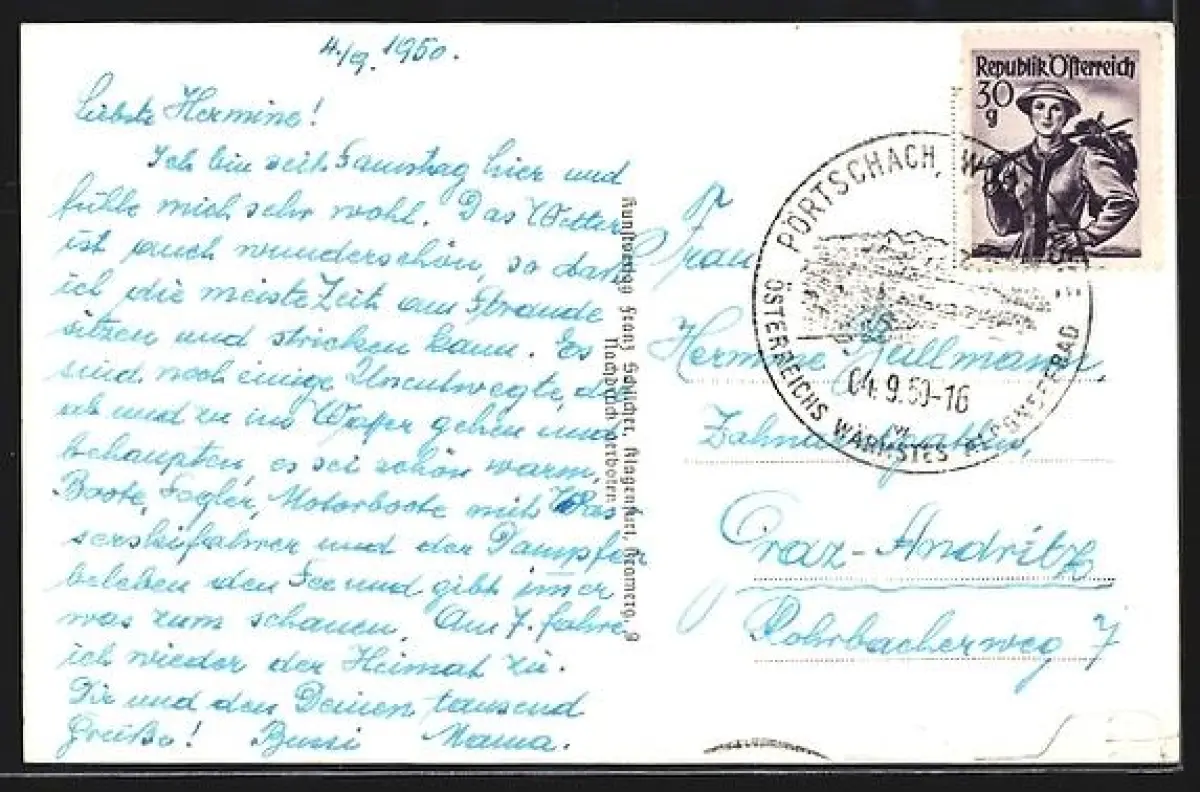 4./9. 1950.
Liebste Hermine!
Ich bin seit Samstag hier und
fühle mich sehr wohl. Das Wetter
ist auch wunderschön, so daß
ich die meiste Zeit am Strande
sitzen und stricken kann. Es
sind noch einige Unentwegte, die
ab und zu ins Waßer gehen und
behaupten, es sei schön warm.
Boote, Segler, Motorboote mit Was
serskifahrer und der Dampfer
beleben den See und gibt im̅er
was zum schauen. Am 7. fahre
ich wieder der Heimat zu.
Dir und den Deinen tausend
Grüße! Bussi Mama.
Kunstverlag Franz Schilcher, Klagenfurt, Kramerg. 9
Nachdruck verboten
Republik Österreich
30
g
PÖRTSCHACH,
ÖSTERREICHS WÄRMSTES ALPENSEEBAD
04.9.50-16
Frau
Hermine
Graz-Andritz
Rohrbacherweg 7